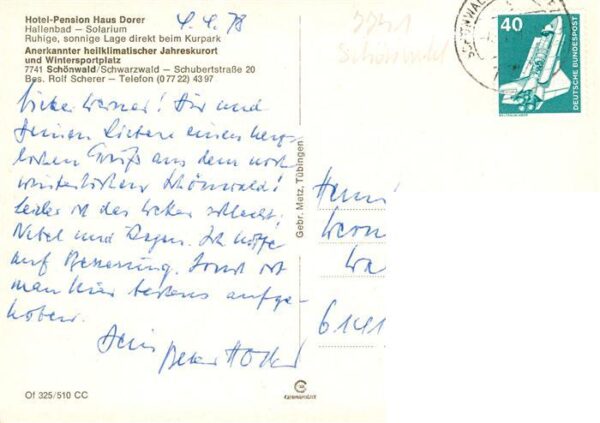 Hotel-Pension Haus Dorer
Hallenbad – Solarium
Ruhige, sonnige Lage direkt beim Kurpark
Anerkannter heilklimatischer Jahreskurort
und Wintersportplatz
7741 Schönwald/Schwarzwald – Schubertstraße 20
Bes. Rolf Scherer – Telefon (0 77 22) 43 97
4.4.78
Lieber Werner! Dir und
Deinen Lieben einen herz-
lichen Gruß aus dem noch
winterlichen Schönwald!
Leider ist das Wetter schlecht,
Nebel und Regen. Ich hoffe
auf Besserung. Sonst ist
man hier bestens aufge-
hoben.
Dein
Peter
Of 325/510 CC
Gebr. Metz, Tübingen
7741
Schönwald
SCHÖNWALD
40
DEUTSCHE BUNDESPOST
Herrn
Wern
Wa
6141